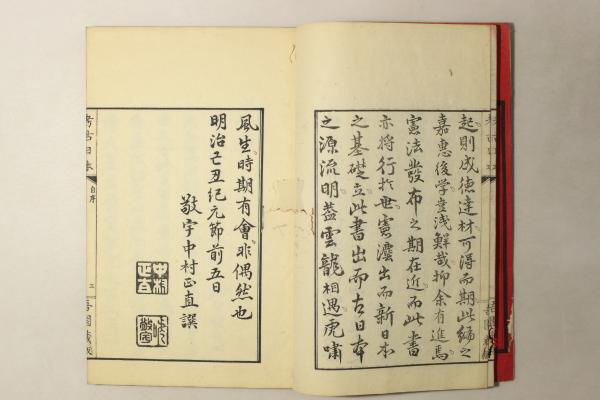 起則成德達材可得而期此編之
嘉惠後學豈淺鮮哉抑余有進焉
憲法發布之期在近而此書
亦將行於世憲灋出而新日本
之基礎立此書出而古日本
之源流明蓋雲龍相遇虎嘯
風生時期有會非偶然也
明治己丑紀元節前五日
敬宇中村正直譔
中村正直
考古日本
自序
三